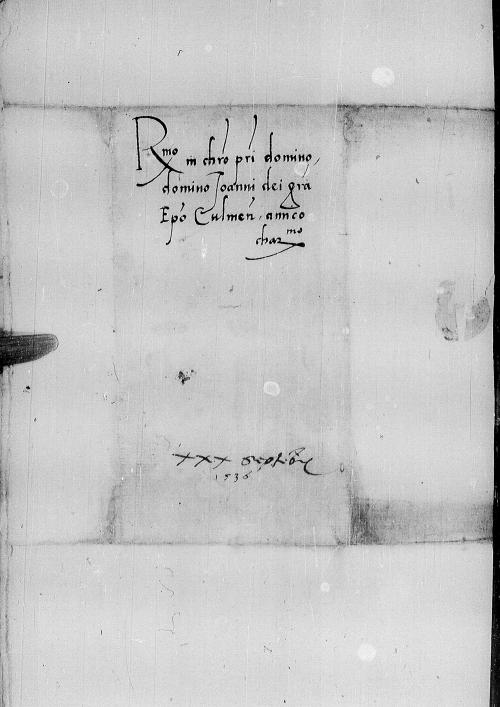 Rmo in chro pri domino,
domino Joanni dei gra
Epo Culmen. amico
charmo
xxx Septebr
1536